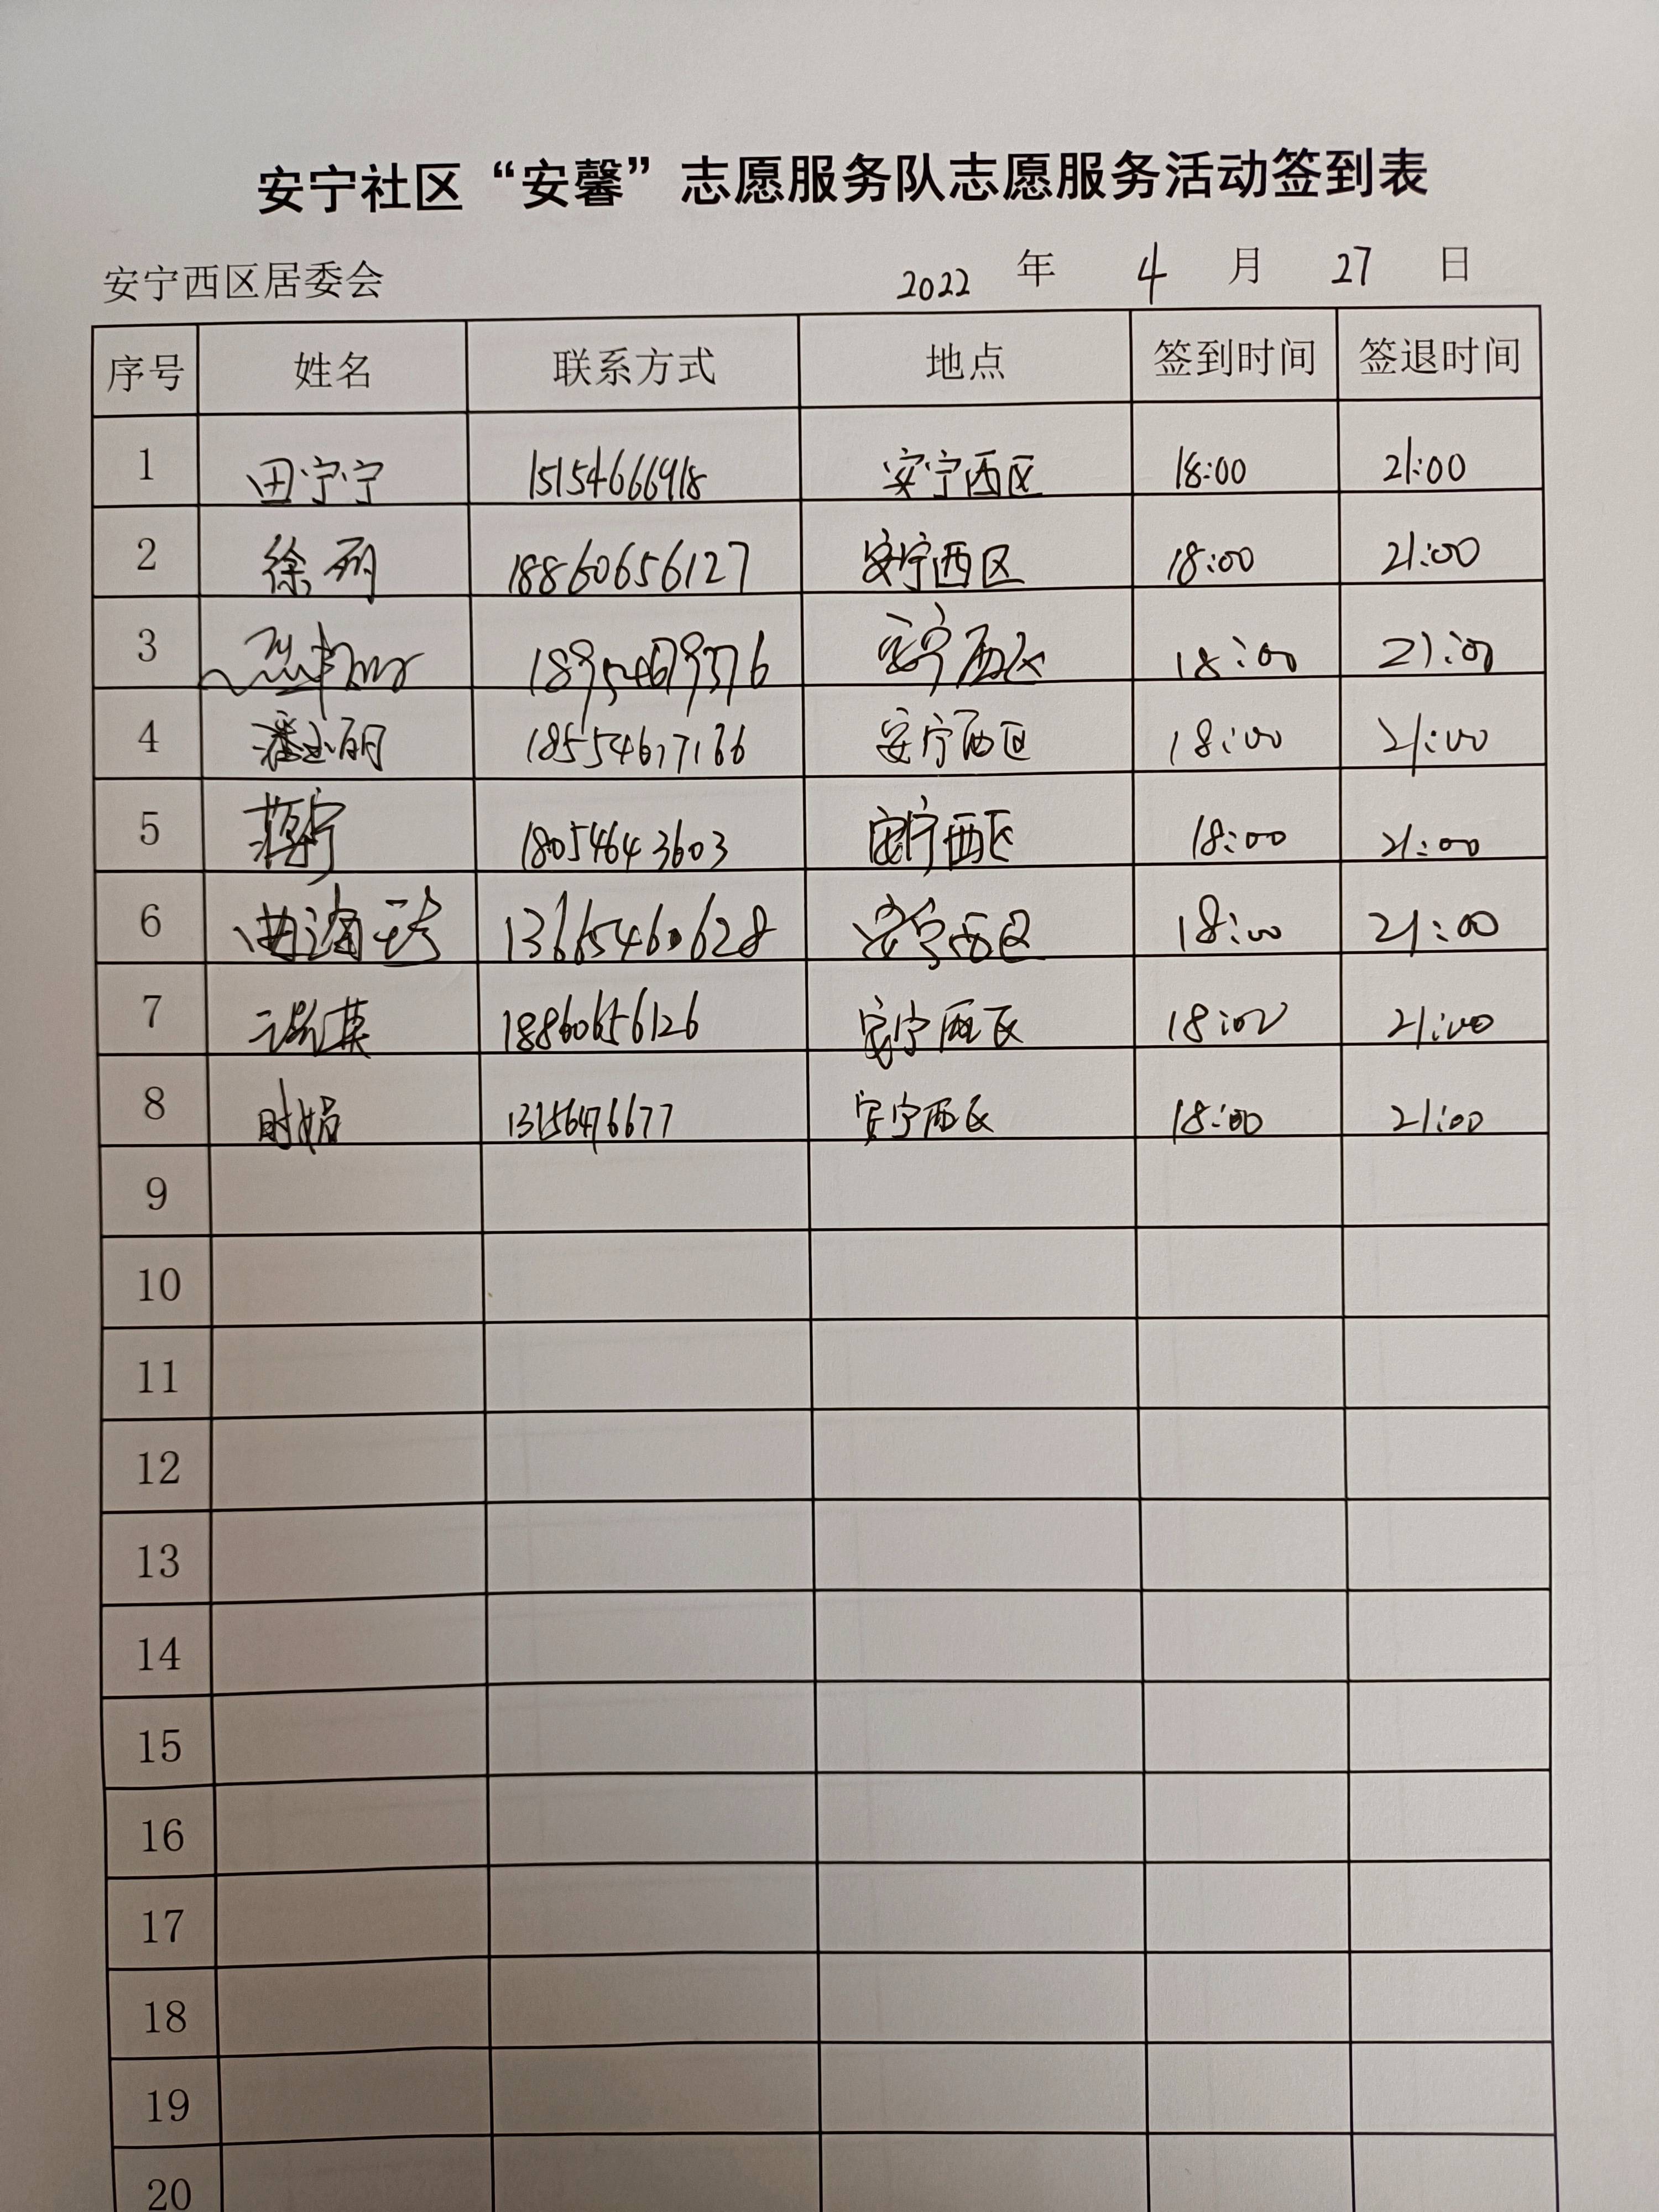 安宁社区“安馨”志愿服务队志愿服务活动签到表
安宁西区居委会 2022 年 4 月 27 日
序号 姓名 联系方式 地点 签到时间 签退时间
1 田宁宁 15154666918 安宁西区 18:00 21:00
2 徐丽 18860656127 安宁西区 18:00 21:00
3 安宁西区 18:00 21:00
4 潘玉丽 安宁西区 18:00 21:00
5 蒋宁 18054643603 安宁西区 18:00 21:00
6 曲海珍 13665460628 安宁西区 18:00 21:00
7 18860656126 安宁西区 18:00 21:00
8 时娟 安宁西区 18:00 21:00
9
10
11
12
13
14
15
16
17
18
19
20